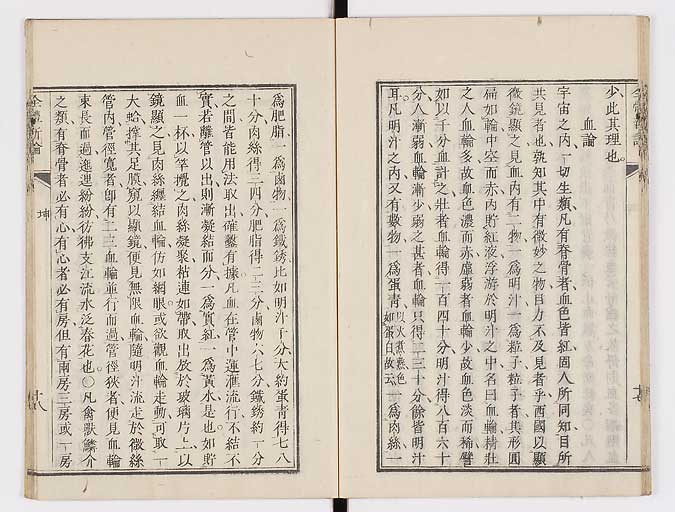 少此其理也。
血論
宇宙之內一切生類凡有脊骨者血色皆紅固人所同知目所
共見者也孰知其中有微妙之物目力不及見者乎西國以顯
微鏡顯之見血內有二物一爲明汁一爲粒子粒子者其形圓
扁如輪中空而赤內貯紅液浮游於明汁之中名曰血輪精壯
之人血輪多故血色濃而赤虛弱者血輪少故血色淡而稀譬
如以千分血計之壯者血輪得一百四十分明汁得八百六十
分人漸弱血輪漸少弱之甚者血輪只得二三十分餘皆明汁
耳凡明汁之內又有數物一爲蛋青如蛋白故云以火煮熱色一爲肉絲一
爲肥脂一爲鹵物一爲鐵銹比如明汁千分大約蛋青得七八
十分肉絲得三四分肥脂得二三分鹵物六七分鐵銹約一分
之間皆能用法取出確鑿有據凡血在管中運滙流行不結不
實若離管以出則漸凝結而分一爲實紅一爲黃水是也如貯
血一杯以竿攪之肉絲凝聚粘連如帶取出放於玻璃片上以
鏡顯之見肉絲纏結血輪仿如網眼或欲觀血輪走動可取一
大蛤撑其足膜窺以顯鏡便見無限血輪隨明汁流走於微絲
管內管徑寬者卽有二三血輪並行而過管徑狹者便見血輪
束長而過迤邐紛紛彷彿支江流水泛春花也。○凡禽獸鱗介
之類有脊骨者必有心有心者必有房但有兩房三房或一房
全體新論
坤
十八